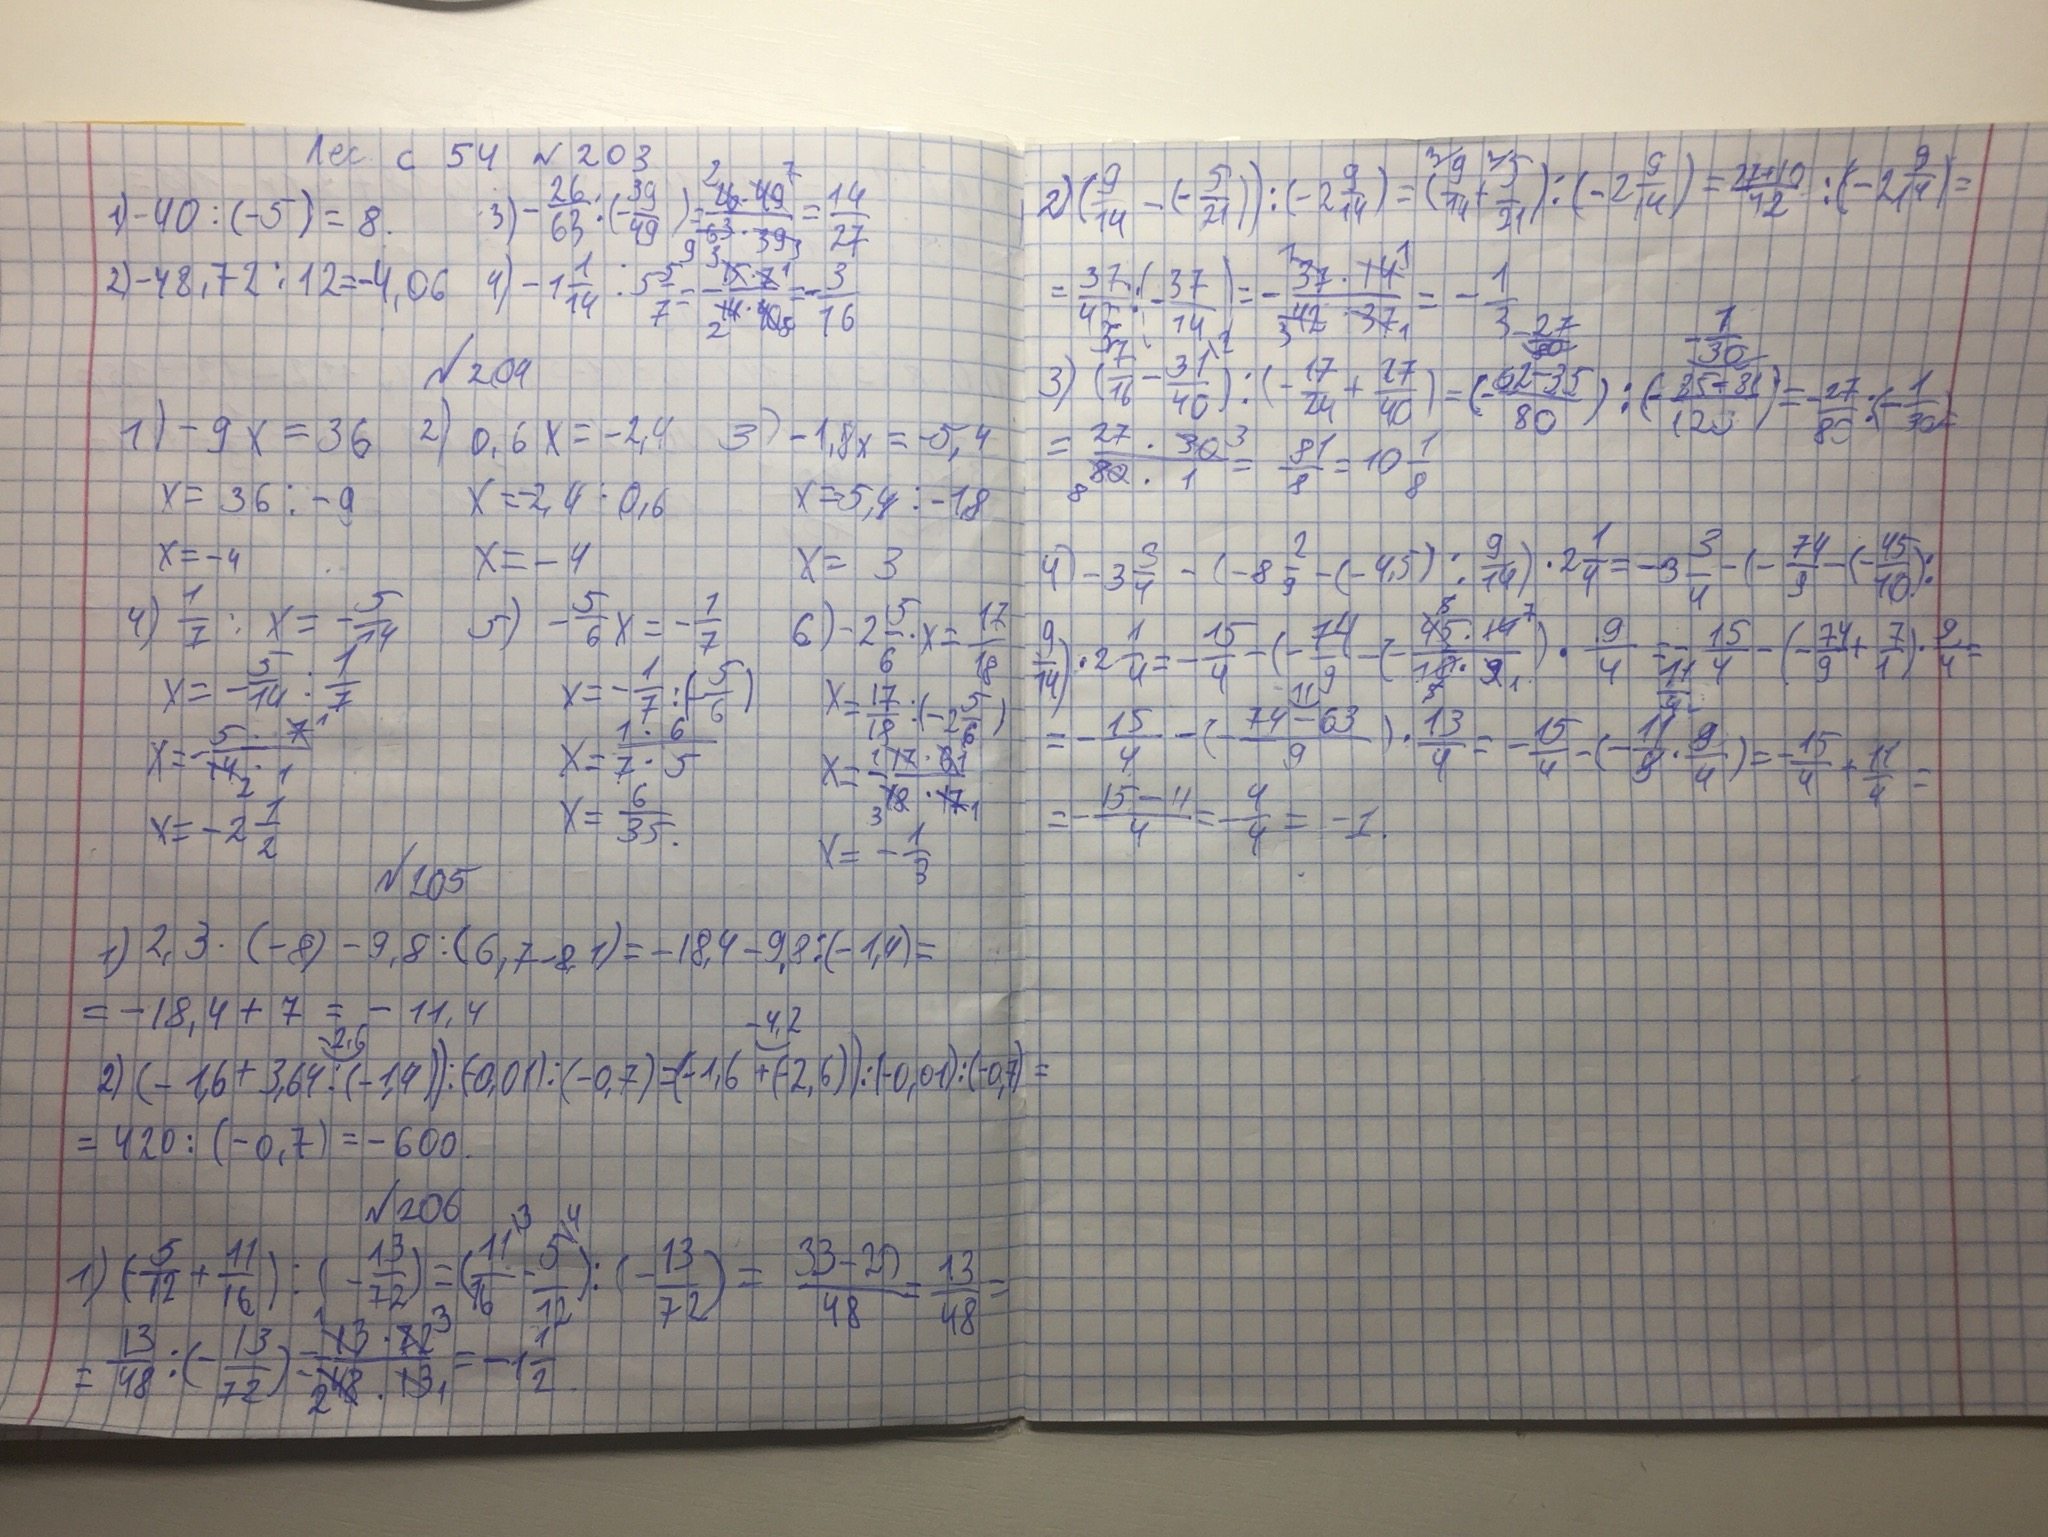 с 54 № 203
1) -40 : (-5) = 8. 3) -26/63 : (-39/49) = 26·49/63·39 = 14/27
2) -48,72 : 12 = -4,06 4) -1 1/14 : 5 5/7 = -15·7/14·40 = -3/16
№ 204
1) -9x = 36 2) 0,6x = -2,4 3) -1,8x = -5,4
x = 36 : -9 x = -2,4 : 0,6 x = -5,4 : -1,8
x = -4 x = -4 x = 3
4) 1/7 : x = -5/14 5) -5/6 x = -1/7 6) -2 5/6 · x = 17/18
x = -5/14 : 1/7 x = -1/7 : (-5/6) x = 17/18 : (-2 5/6)
x = -5·7/14·1 x = 1·6/7·5 x = -17·6/18·17
x = -2 1/2 x = 6/35. x = -1/3
№ 205
1) 2,3 · (-8) - 9,8 : (6,7-8,1) = -18,4 - 9,8 : (-1,4) =
= -18,4 + 7 = -11,4
-2,6 -4,2
2) (-1,6 + 3,64 : (-1,4)) : (-0,01) : (-0,7) = (-1,6 + (-2,6)) : (-0,01) : (-0,7) =
= 420 : (-0,7) = -600.
№ 206
1) (-5/12 + 11/16) : (-13/72) = (11/16 - 5/12) : (-13/72) = 33-20/48 = 13/48 =
= 13/48 : (-13/72) = -13·72/48·13 = -1 1/2.
2) (9/14 - (-5/21)) : (-2 9/14) = (9/14 + 5/21) : (-2 9/14) = 27+10/42 : (-2 9/14) =
= 37/42 : (-37/14) = -37·14/42·37 = -1/3
-27/80 -1/30
3) (7/16 - 31/40) : (-17/24 + 27/40) = (-62-35/80) : (-85-81/120) = -27/80 : (-1/30)
= 27·30/80·1 = 81/8 = 10 1/8
4) -3 3/4 - (-8 2/9 - (-4,5) : 9/14) · 2 1/4 = -3 3/4 - (-74/9 - (-45/10) :
9/14) · 2 1/4 = -15/4 - (-74/9 - (-45·14/10·9) · 9/4 = -15/4 - (-74/9 + 7/1) · 9/4 =
= -15/4 - (-74-63/9) · 13/4 = -15/4 - (-11/9 · 9/4) = -15/4 + 11/4 =
= -15-11/4 = -4/4 = -1.